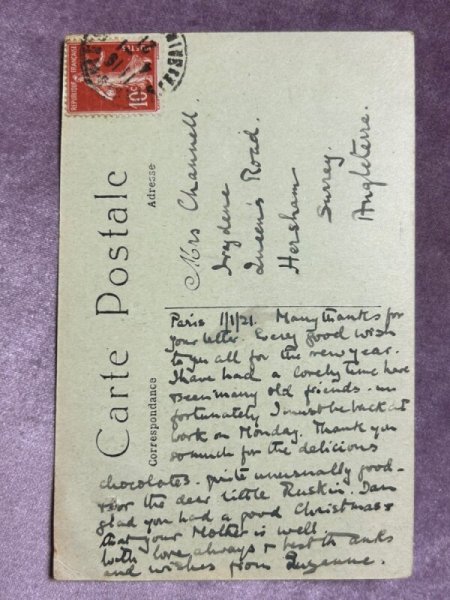 REPUBLIQUE FRANÇAISE
POSTES
10c
Carte Postale
Adresse
Correspondance
Mrs Channell.
Ivydene
Queen's Road.
Hersham
Surrey.
Angleterre.
Paris 1/1/21. Many thanks for
your letter. Every good wish
to you all for the new year.
I have had a lovely time have
seen many old friends - un
fortunately I must be back at
work on Monday. Thank you
so much for the delicious
chocolates - quite unusually good -
Poor the dear little Ruskin. I am
glad you had a good Christmas &
that your Mother is well.
With love always & best thanks
and wishes from Suzanne.